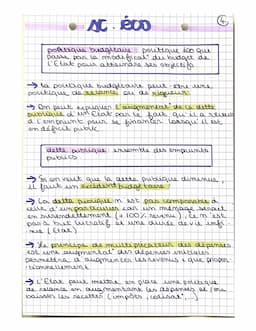 AC. ECO
4
politique budgétaire : politique éco que
passe par la modificat° du budget de
l'État pour atteindre ses objectifs
→ La politique budgétaire peut être une
politique de relance ou de rigueur.
→ On peut expliquer l'augmentat° de la dette
publique d'un État par le fait qu'il a
d'emprunt pour se financer lorsqu'il est
en déficit public.
dette publique : ensemble des emprunts
publics
→ Si on veut que la dette publique diminue,
il faut un excédent budgétaire
→ La dette publique n'est pas comparable à
celle d'un particulier car un ménage serait
en surendettement (+ 100% revenu), ce n'est
pas à but lucratif et une durée de vie infi-
nie (État)
→ Le principe du multiplicateur des dépenses
est une augmentat° des dépenses initiales
permettra d'augmenter les revenus + que propor-
tionnellement
→ L'État peut mettre en place une politique
de relance en augmentant les dépenses et/ou
baisser les recettes (impôts, cotisat°...)